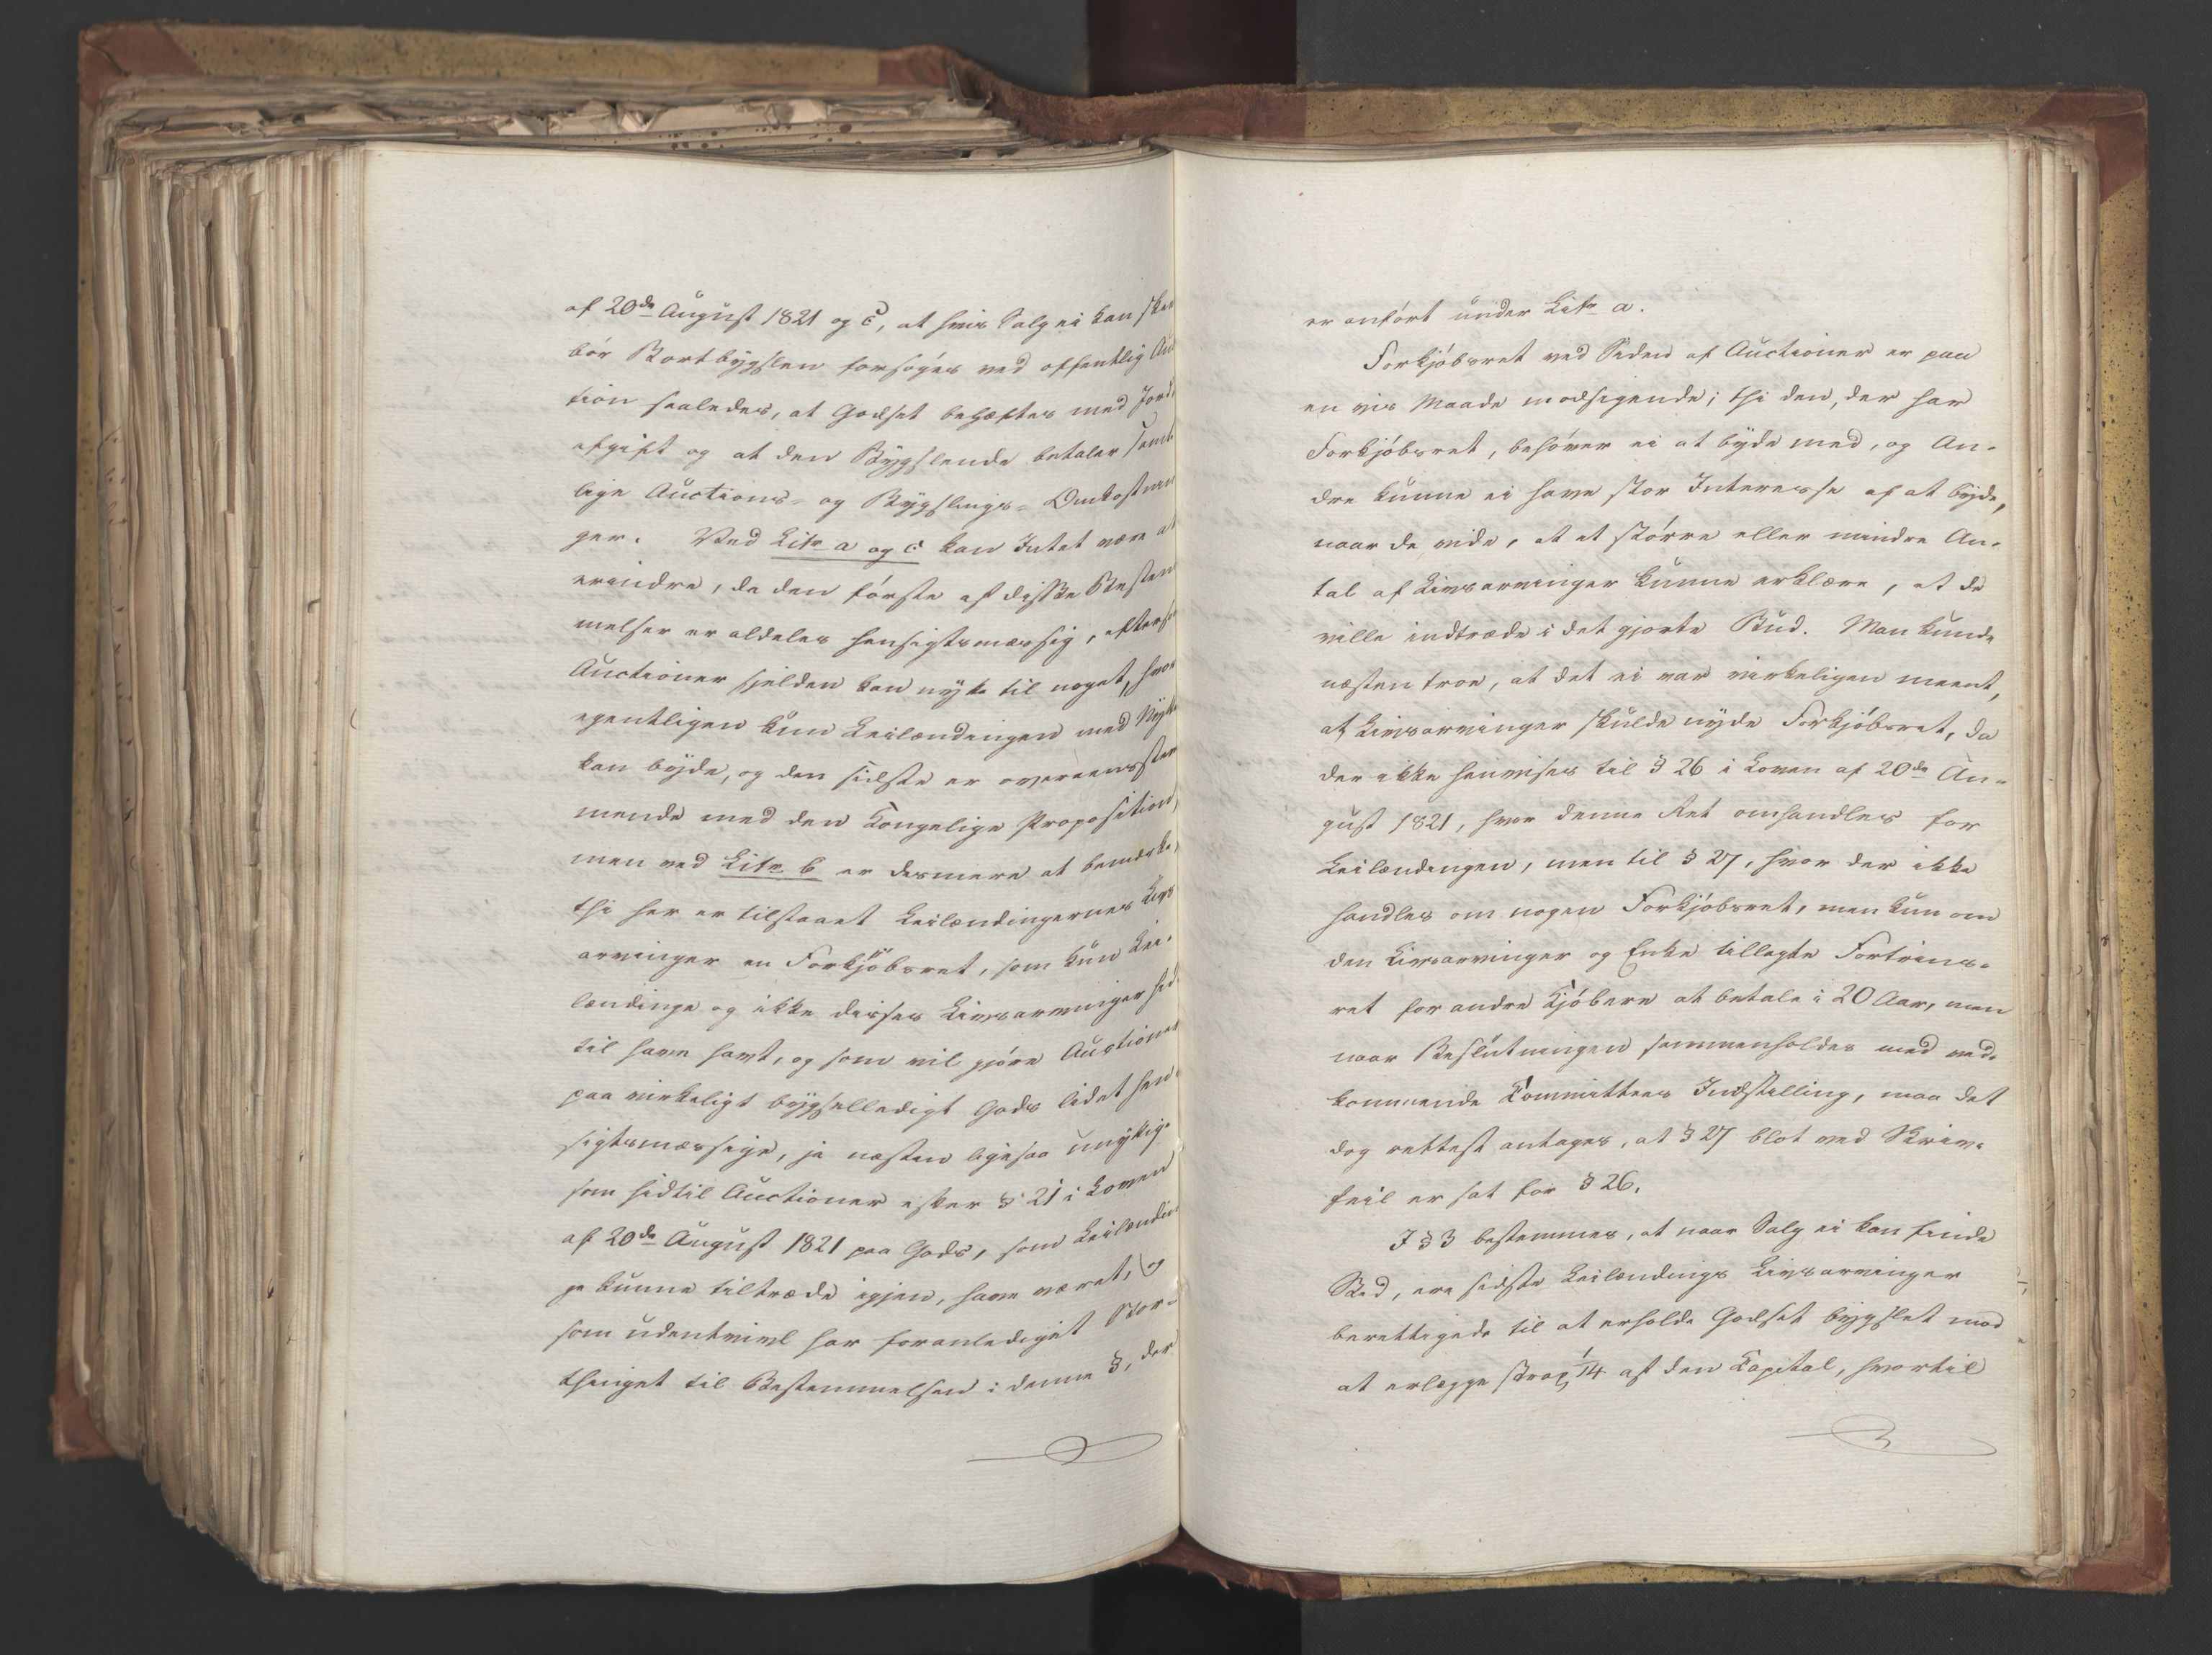 af 20de August 1821 og c, at hvis Salg ei kan skee
bør Bortbygslen forsøges ved offentlig Auc
tion saaledes, at Godset behæftes med Jord
afgift og at den Bygslende betaler samt
lige Auctions- og Bygslings-Omkostnin
ger. Ved Litr a og c kan Intet være at
erindre, da den første af disse Bestem
melser er aldeles hensigtsmæssig, efterso
Auctioner sjelden kan nytte til noget, hvor
egentligen kun Leilændingen med Nytte
kan byde, og den sidste er overeensstem
mende med den Kongelige Proposition,
men ved Litr. b er desmere at bemærke,
thi her er tilstaaet Leilændingernes Livs
arvinger en Forkjøbsret, som kun Lei-
lændinge og ikke disses Livsarvinger hid
til have havt, og som vil gjøre Auctioner
paa virkeligt bygselledigt Gods lidet hen-
sigtsmæssige, ja næsten ligesaa unyttige
som hidtil Auctioner efter § 21 i Loven
af 20de August 1821 paa Gods, som Leilændin
ge kunne tiltræde igjen, have været, og
som udentvivl har foranlediget Stor-
thinget til Bestemmelsen i denne §, der
er anført under Litr a.
Forkjøbsret ved Siden af Auctioner er paa
en vis Maade modsigende; thi den, der har
Forkjøbsret, behøver ei at byde med, og An-
dre kunne ei have stor Interesse af at byde,
naar de vide, at et større eller mindre An-
tal af Livsarvinger kunne erklære, at de
ville indtræde i det gjorte Bud. Man kunde
næsten troe, at det ei var virkeligen meent,
at Livsarvinger skulde nyde Forkjøbsret, da
der ikke henvises til § 26 i Loven af 20de Au-
gust 1821, hvor denne Ret omhandles for
Leilændingen, men til § 27, hvor der ikke
handles om nogen Forkjøbsret, men kun om
den Livsarvinger og Enke tillagte Fortrins-
ret for andre Kjøbere at betale i 20 Aar, men
naar Beslutningen sammenholdes med ved-
kommende Committees Indstilling, maa det
dog rettest antages, at § 27 blot ved Skriv-
feil er sat for § 26.
I § 3 bestemmes, at naar Salg ei kan finde
Sted, ere sidste Leilændings Livsarvinger
berettigede til at erholde Godset bygslet mod
at erlægge strax 1/14 af den Capital, hvortil